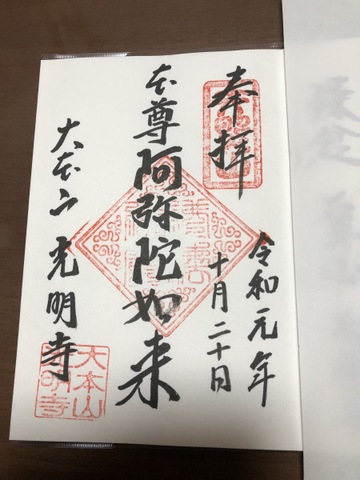 奉拝
令和元年
十月二十日
本尊阿弥陀如来
大本山光明寺
大本山
光明寺